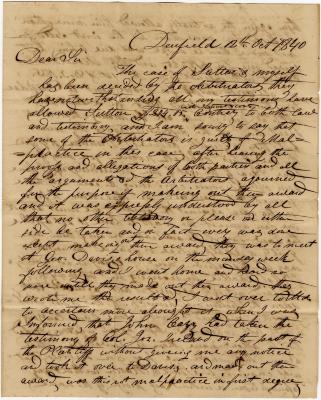 Deerfield 12th Oct 1840
Dear Sir
The case of Sutton & myself
has been decided by the Arbitrators, they
have notwithstanding all my testimony have
allowed Sutton contrary to both law
and testimony, and I am sorry to say that
some of the Arbitrators is guilty of Mal-
practice in this case. after hearing the
proofs and allegations of both parties and all
the arguments & the arbitrators adjourned
for the purpose of making out their award
and it was expressly understood by all
that no other testimony or pleas on either
side be taken and in fact every was done
except making their award. they was to meet
at Geo. Davis house on the monday week
following and I went home and heard no
more until they made out their award. they
wrote me the result &, I went over to
to ascertain more about it when I was
informed that John had taken the
testimony of Col. Jos. on the part of
the Plaintiff without giving me any notice
and took it over to Davis, and made out the
award, was this not malpractice in first degree,